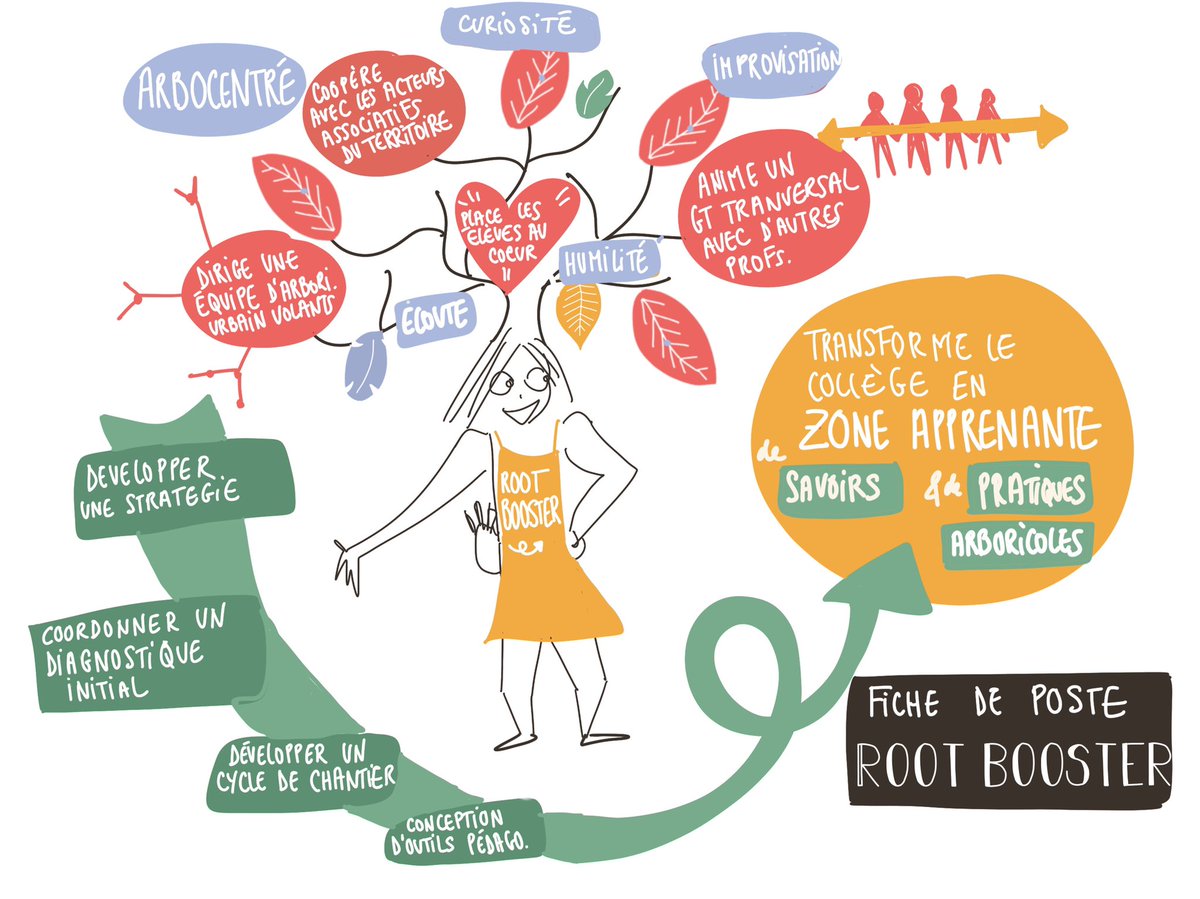 CURIOSITÉ
ARBOCENTRÉ
IMPROVISATION
COOPÈRE
AVEC LES ACTEURS
ASSOCIATIFS
DU TERRITOIRE
ANIME UN
GT TRANVERSAL
AVEC D'AUTRES
PROFS.
"PLACE LES
ELÈVES AU
COEUR"
HUMILITÉ
DIRIGE UNE
ÉQUIPE D'ARBORI.
URBAIN VOLANTS
ÉCOUTE
TRANSFORME LE
COLLÈGE EN
ZONE APPRENANTE
de SAVOIRS & de PRATIQUES
ARBORICOLES
ROOT
BOOSTER
DEVELOPPER
UNE STRATEGIE
COORDONNER UN
DIAGNOSTIQUE
INITIAL
DÉVELOPPER UN
CYCLE DE CHANTIER
CONCEPTION
D'OUTILS PÉDAGO.
FICHE DE POSTE
ROOT BOOSTER